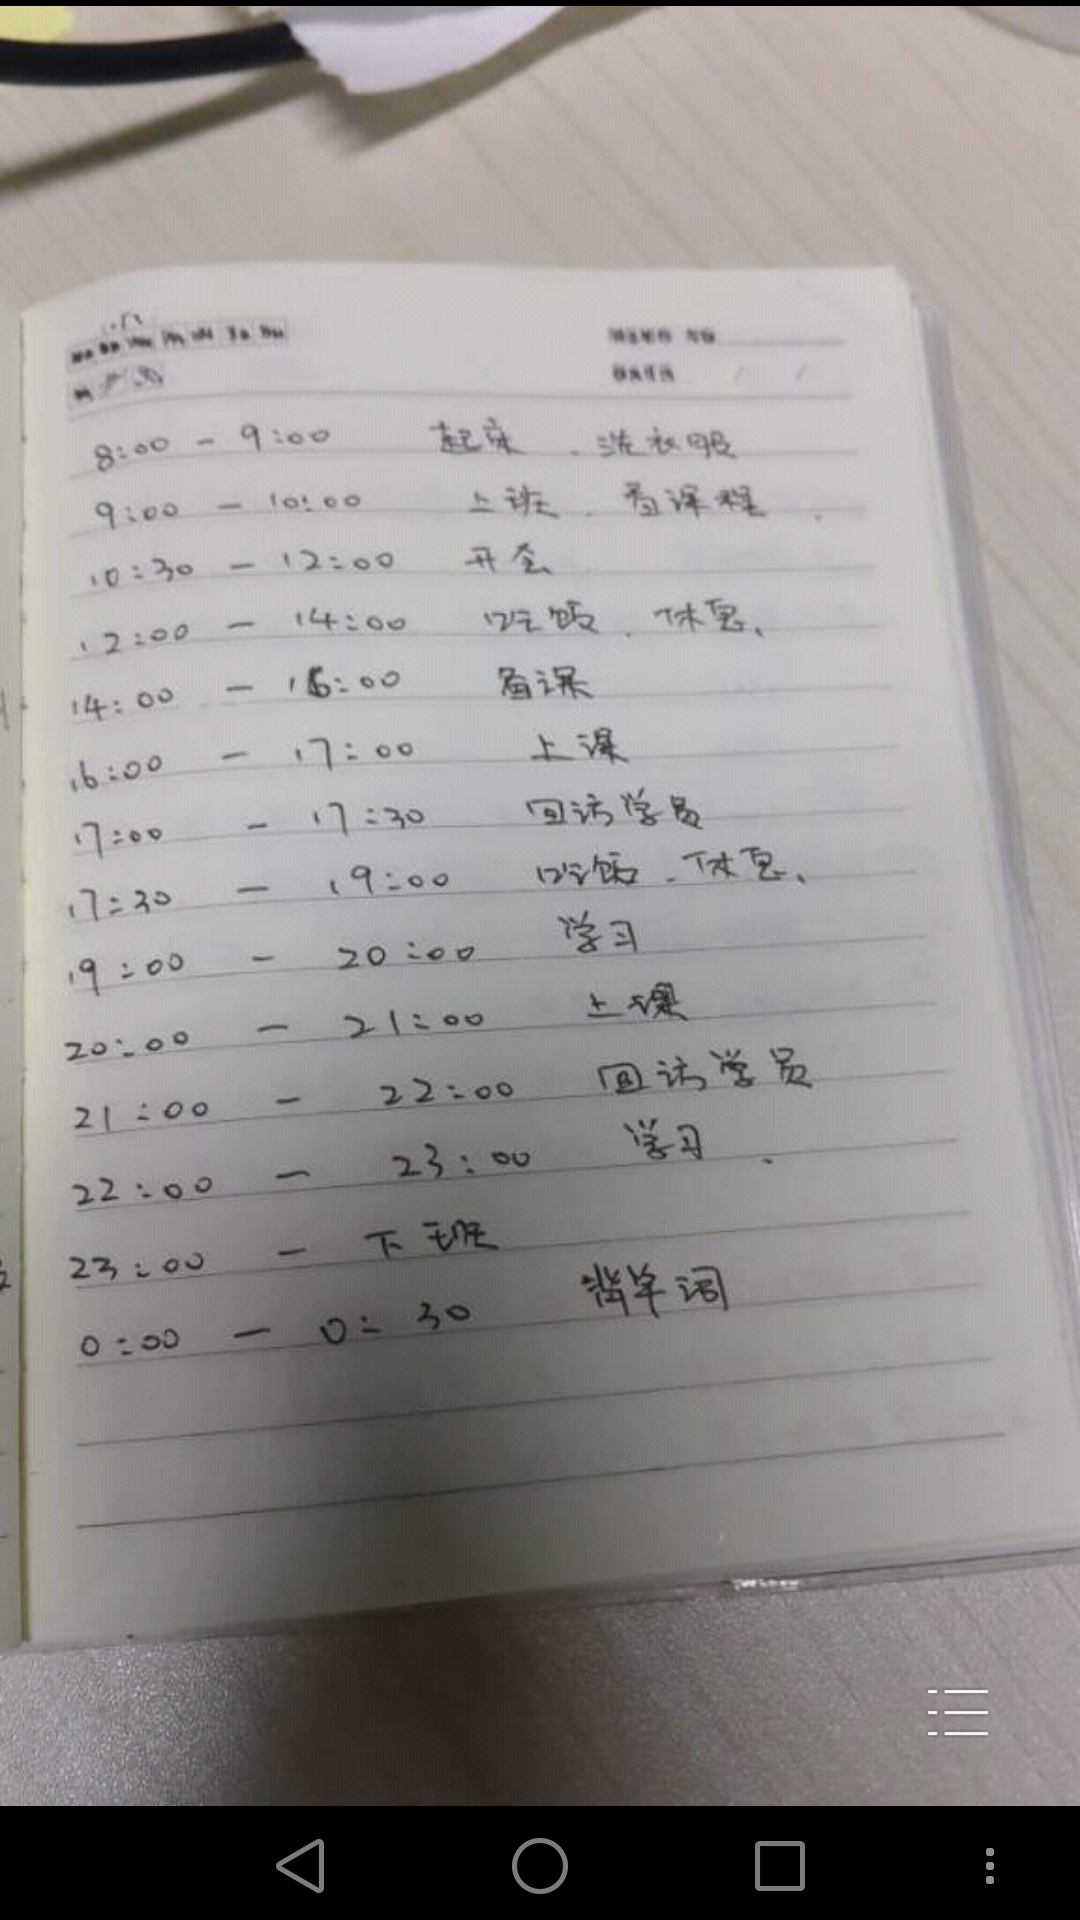 8:00 - 9:00 起床、洗衣服
9:00 - 10:00 上班、看课程.
10:30 - 12:00 开会
12:00 - 14:00 吃饭、休息、
14:00 - 16:00 看课
16:00 - 17:00 上课
17:00 - 17:30 回访学员
17:30 - 19:00 吃饭、休息、
19:00 - 20:00 学习
20:00 - 21:00 上课
21:00 - 22:00 回访学员
22:00 - 23:00 学习.
23:00 - 下班
0:00 - 0:30 背单词